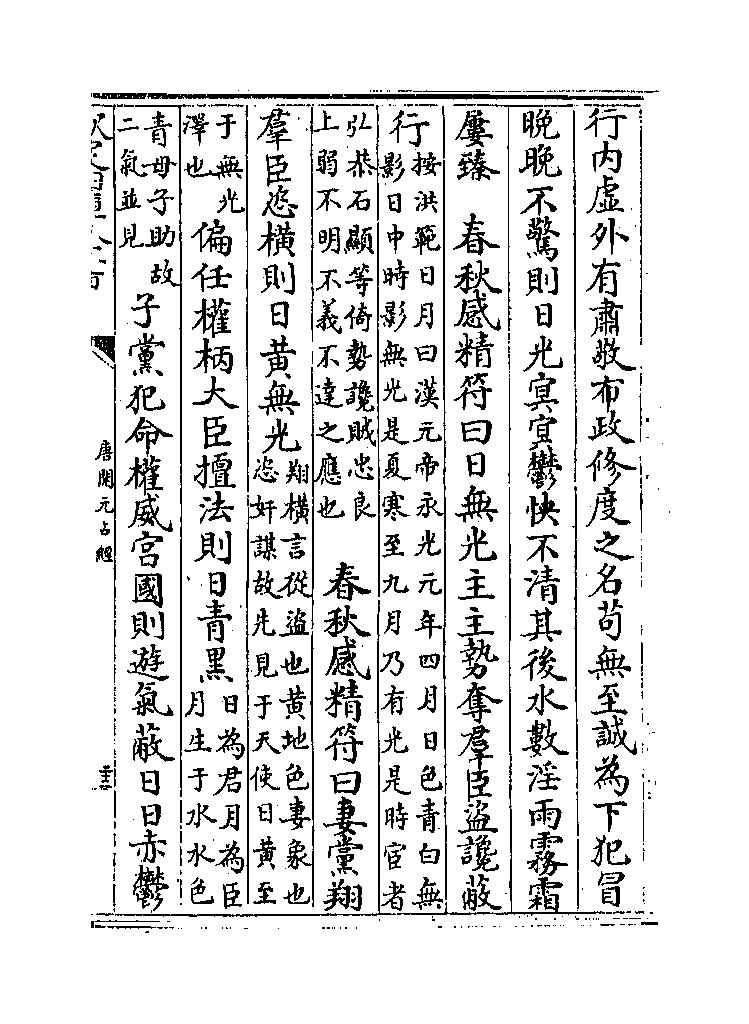 行内虛外有肅敬布政修度之名苟無至誠為下犯冒
晚晚不驚則日光㝠㝠鬱怏不清其後水數淫雨霧霜
屢臻　春秋感精符曰日無光主主勢奪羣臣盜讒蔽
行
按洪範日月曰漢元帝永光元年四月日色青白無
影日中時影無光是夏寒至九月乃有光是時宦者
弘恭石顯等倚勢讒賊忠良
上弱不明不義不達之應也
春秋感精符曰妻黨翔
羣臣恣橫則日黄無光
翔橫言從盜也黄地色妻象也
恣奸謀故先見于天使日黄至
于無光
澤也
偏任權柄大臣擅法則日青黑
日為君月為臣
月生于水水色
青母子助故
二氣並見
子黨犯命權威宫國則遊氣蔽日日赤鬱
唐開元占經